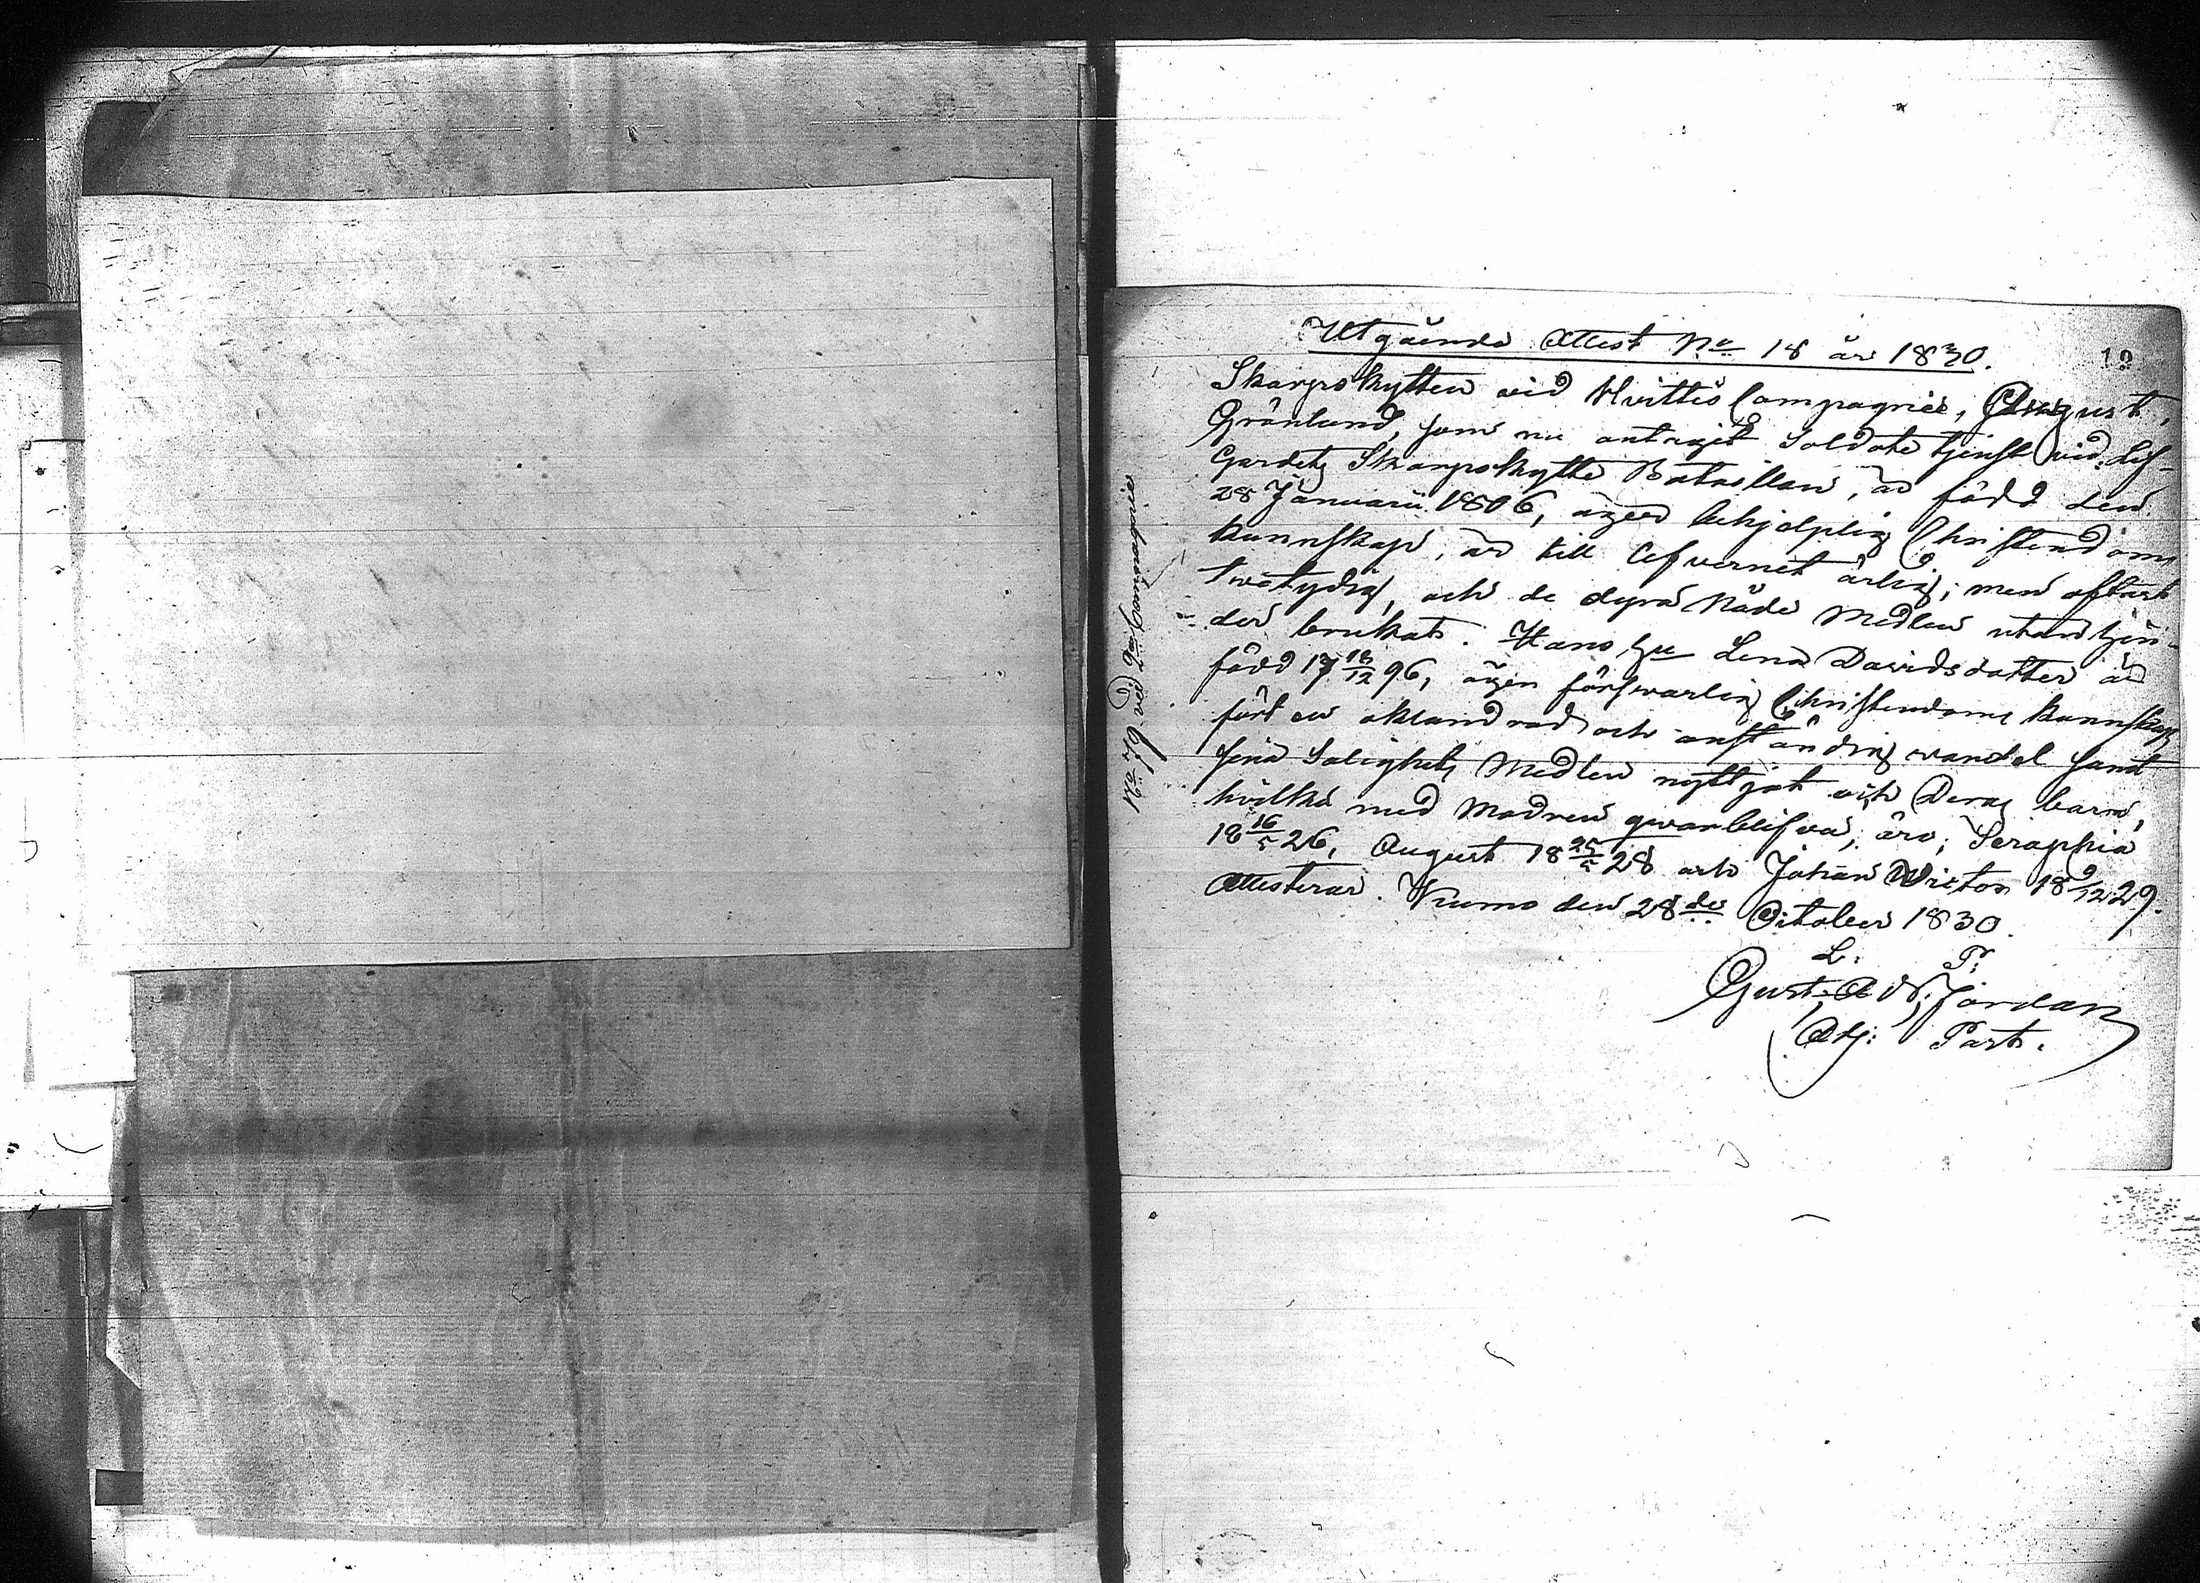 Utgående Attest No 18 år 1830.
12
Skarpskytten vid Hvittis Compagnie, August
Grönlund, som nu antagit Soldate tjenst vid Lif-
Gardets Skarpskytte Bataillon, är född den
28 Januarii 1806, äger behjelplig Christendoms
kunnskap, är till lefvernet ärlig; men oftast
twetydig, och de dyra Nåde Medlen utan hin-
der brukat. Hans Hu Lena Davidsdotter är
född 17 18/12 96, ägen förswarlig Christendoms kunnskap
fört en oklandrad och anständig wandel samt
sina Salighets Medlen nyttjat och Deras barn,
hvilka med Modren qwarblifva, äro; Seraphia
18 16/5 26, August 18 25/5 28 och Johan Victor 18 9/12 29.
Attesterar. Kumo den 28de October 1830.
L. P.
Gust. Ad. Jordan
Adj: Past.
No 79 vid 2dra Compagnie